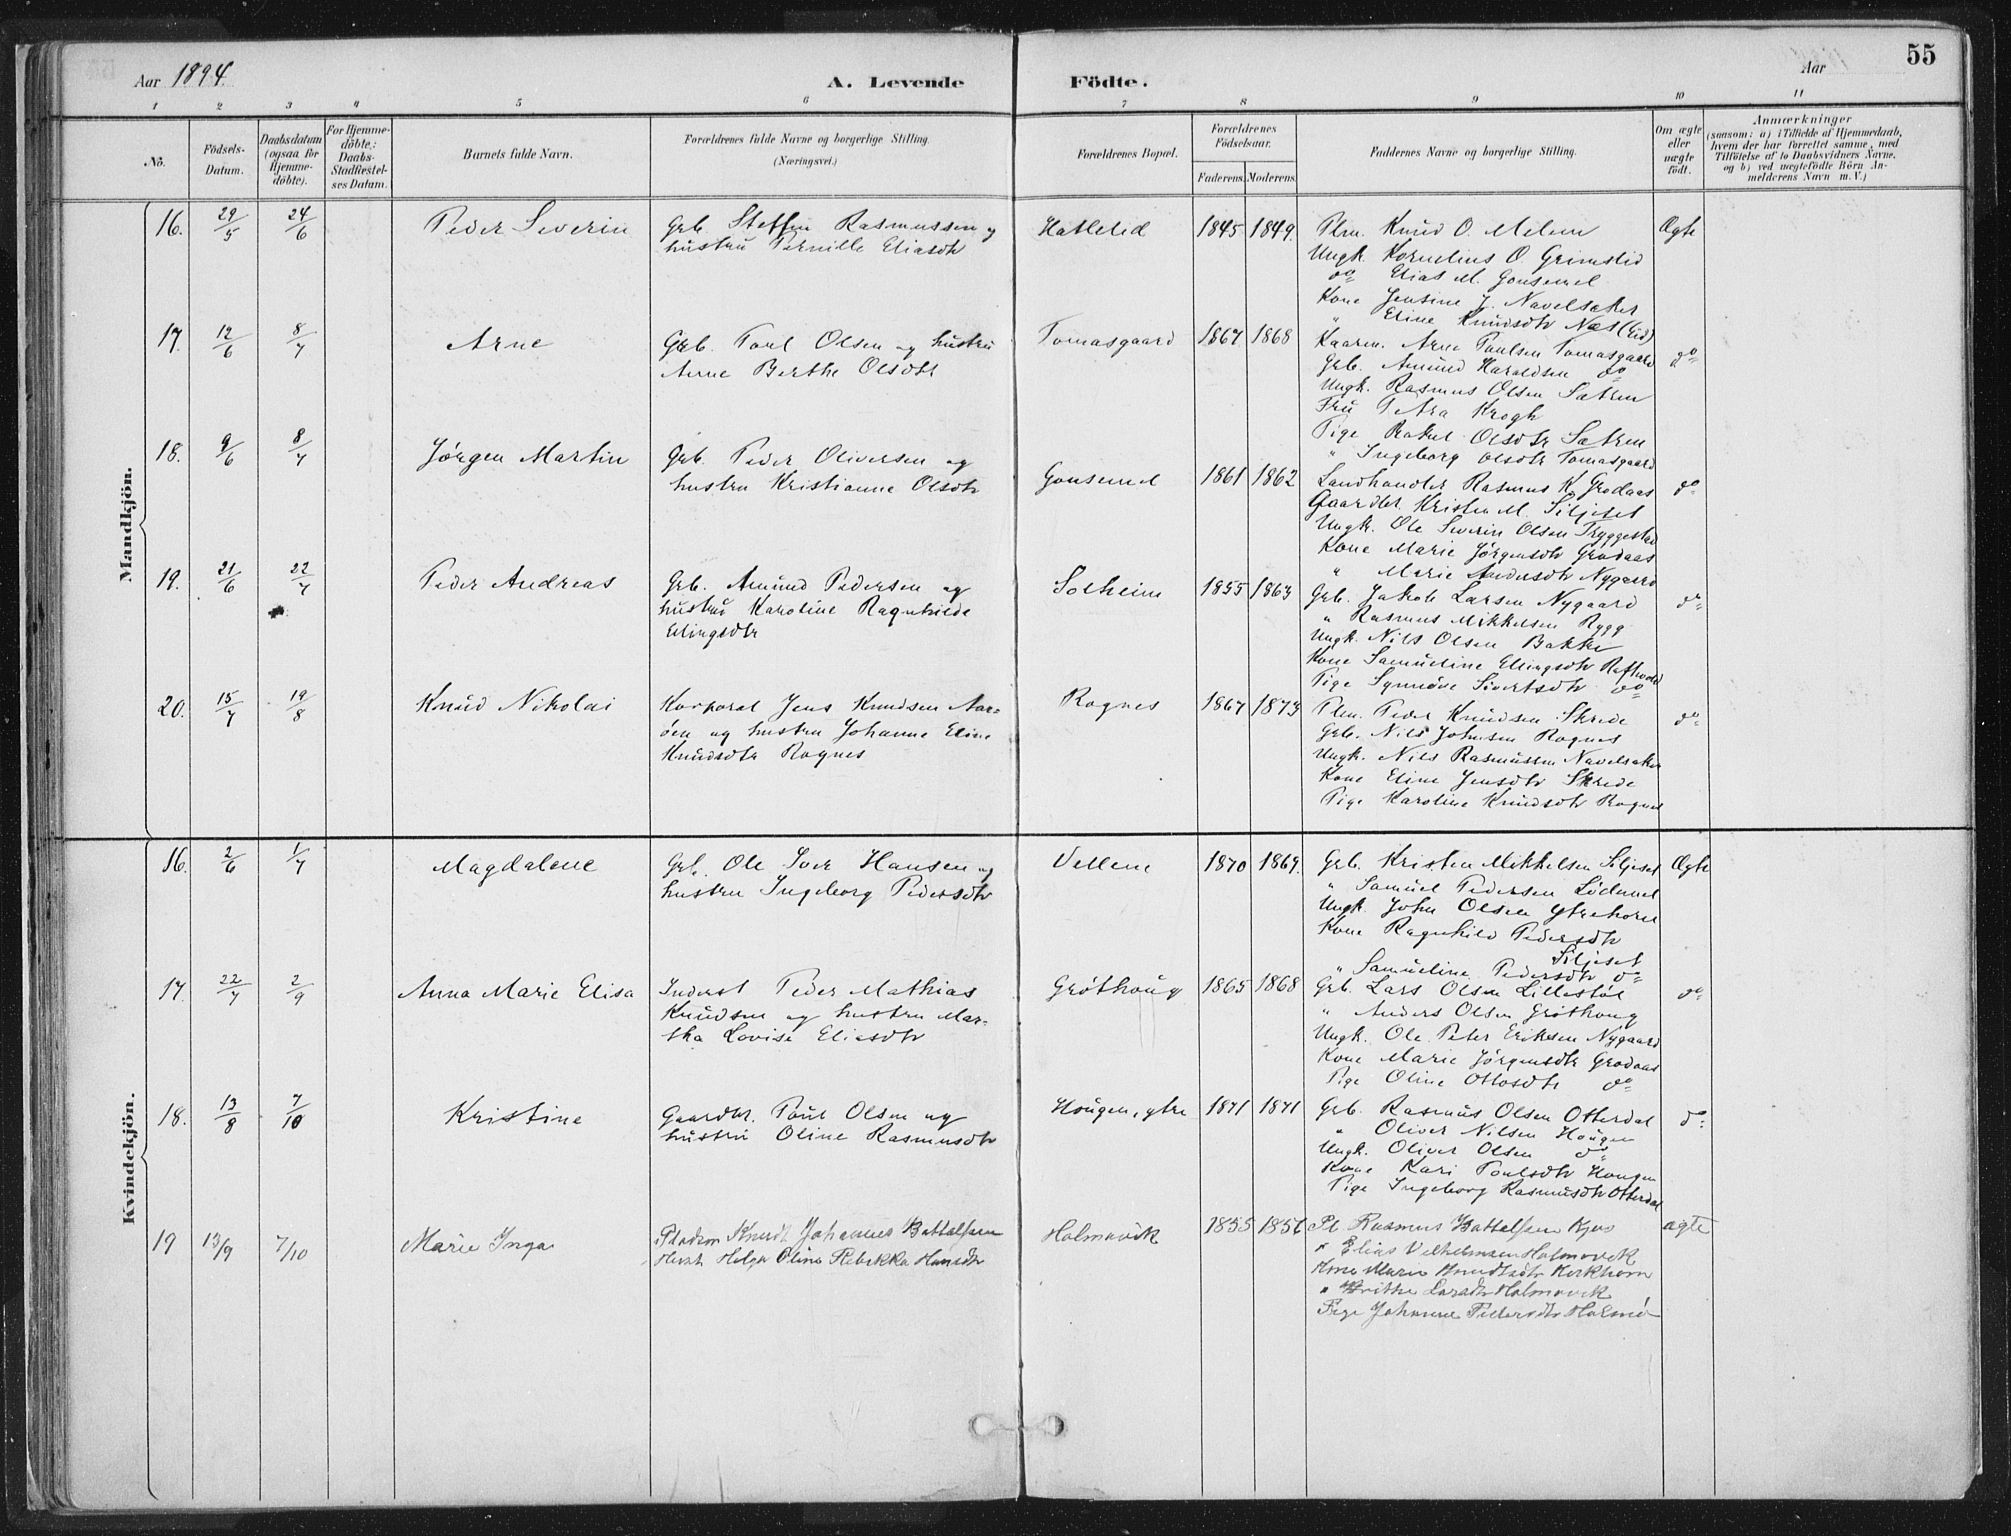 55
Aar 1894.
A. Levende Födte.
Aar
1 2 3 4 5 6 7 8 9 10 11
No.
Födsels-Datum.
Daabsdatum (ogsaa for Hjemme-döbte).
For Hjemme-döbte,: Daabs-Stadfæstel-ses Datum.
Barnets fulde Navn.
Forældrenes fulde Navne og borgerlige Stilling.
(Næringsvei.)
Forældrenes Bopæl.
Forældrenes Födselsaar.
Faderens. Moderens.
Faddernes Navne og borgerlige Stilling.
Om ægte eller uægte födt.
Anmærkninger
(saasom: a) i Tilfælde af Hjemmedaab,
hvem der har forrettet samme, med
Tilföielse af to Daabsvidners Navne,
og b) ved uægtefödte Börn An-
melderens Navn m. V.)
Mandkjön.
16. 29/5 24/6 Peder Severin
Grb. Steffen Rasmussen og
hustru Pernille Eliasdtr
Hatlelid 1845 1849.
Plm. Knud O. Melem
Ungk. Kornelius O. Grimstid
do Elias M. Gausemel
Kone Jensine J. Navelsaker
" Eline Knudsdtr Næs (Eid)
Ægte
17. 12/6 8/7 Arne
Grb. Paul Olsen og hustru
Anne Berthe Olsdtr
Tomasgaard 1867 1868
Kaarm. Arne Paulsen Tomasgaard
Grb. Amund Haraldsen do
Ungk. Rasmus Olsen Sætren
Fru Petra Krogh
Pige Rakel Olsdtr Sætren
" Ingeborg Olsdtr Tomasgaard
do
18. 9/6 8/7 Jørgen Martin
Grb. Peder Oliversen og
hustru Kristianne Olsdtr
Gausemel 1861 1862
Landhandler Rasmus K. Grodaas
Gaardbr. Kristen M. Siljeset
Ungk. Ole Severin Olsen Tryggestad
Kone Marie Jørgensdtr Grodaas
" Marie Andersdtr Nygaard
do
19. 21/6 22/7 Peder Andreas
Grb. Amund Pedersen og
hustru Karoline Ragnhilde
Ellingsdtr
Solheim 1855 1863
Grb. Jakob Larsen Nygaard
" Rasmus Mikkelsen Rygg
Ungk. Nils Olsen Bakke
Kone Samueline Ellingsdtr Raftevold
Pige Synnøve Sivertsdtr do
do
20. 15/7 19/8 Knud Nikolai
Korporal Jens Knudsen Aar-
øen og hustru Johanne Eline
Knudsdtr Rognes
Rognes 1867 1873
Plm. Peder Knudsen Skrede
Grb. Nils Johnsen Rognes
Ungk. Nils Rasmussen Navelsaker
Kone Eline Jensdtr Skrede
Pige Karoline Knudsdtr Rognes
do
Kvindekjön.
16. 2/6 1/7 Magdalene
Grb. Ole Iver Hansen og
hustru Ingeborg Pedersdtr
Vellene 1870 1869.
Grb. Kristen Mikkelsen Siljeset
" Samuel Pedersen Lødemel
Ungk. John Olsen Ytrehorn
Kone Ragnhild Pedersdtr
Siljeset
" Samueline Pedersdtr do
Ægte
17. 22/7 2/9 Anna Marie Elisa
Inderst Peder Mathias
Knudsen og hustru Mar-
tha Lovise Eliasdtr
Grøthaug 1865 1868
Grb. Lars Olsen Lillestøl
" Anders Olsen Grøthaug
Ungk. Ole Peter Eriksen Nygaard
Kone Marie Jørgensdtr Grodaas
Pige Oline Ottosdtr do
do
18. 13/8 7/10 Kristine
Gaardbr. Paul Olsen og
hustru Oline Rasmusdtr
Haugen, ytre 1871 1871
Grb. Rasmus Olsen Otterdal
" Oliver Nilsen Haugen
Ungk. Oliver Olsen do
Kone Kari Paulsdtr Haugen
Pige Ingeborg Rasmusdtr Otterdal
do
19 13/9 7/10 Marie Inga
Pladsm Knudt Johannes Battalfsen
Hust Helga Oline Rebekka Hansdtr
Holmøvik 1855 1856
Pl. Rasmus Battalfsen Kjøs
" Elias Vilhelmsen Holmøvik
Kone Marie Knudtsdtr Kirkhorn
" Brithe Larsdtr Holmøvik
Pige Johanne Pedersdtr Holmø
ægte